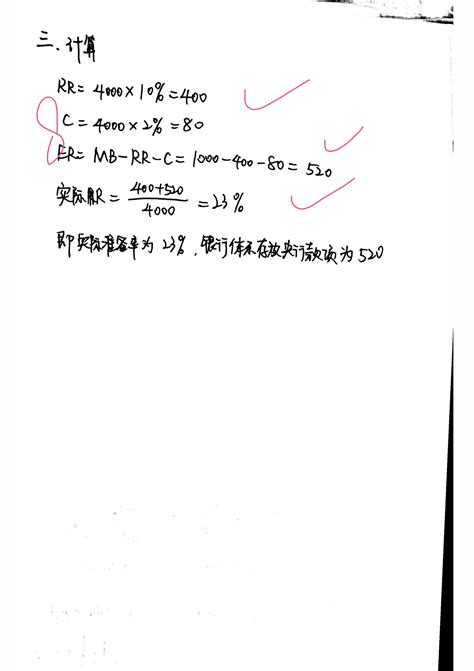 三、计算
RR = 4000 × 10% = 400
C = 4000 × 2% = 80
ER = MB - RR - C = 1000 - 400 - 80 = 520
实际RR = \frac{400+520}{4000} = 23%
即实际准备率为 23%, 银行体系存放央行款项为 520